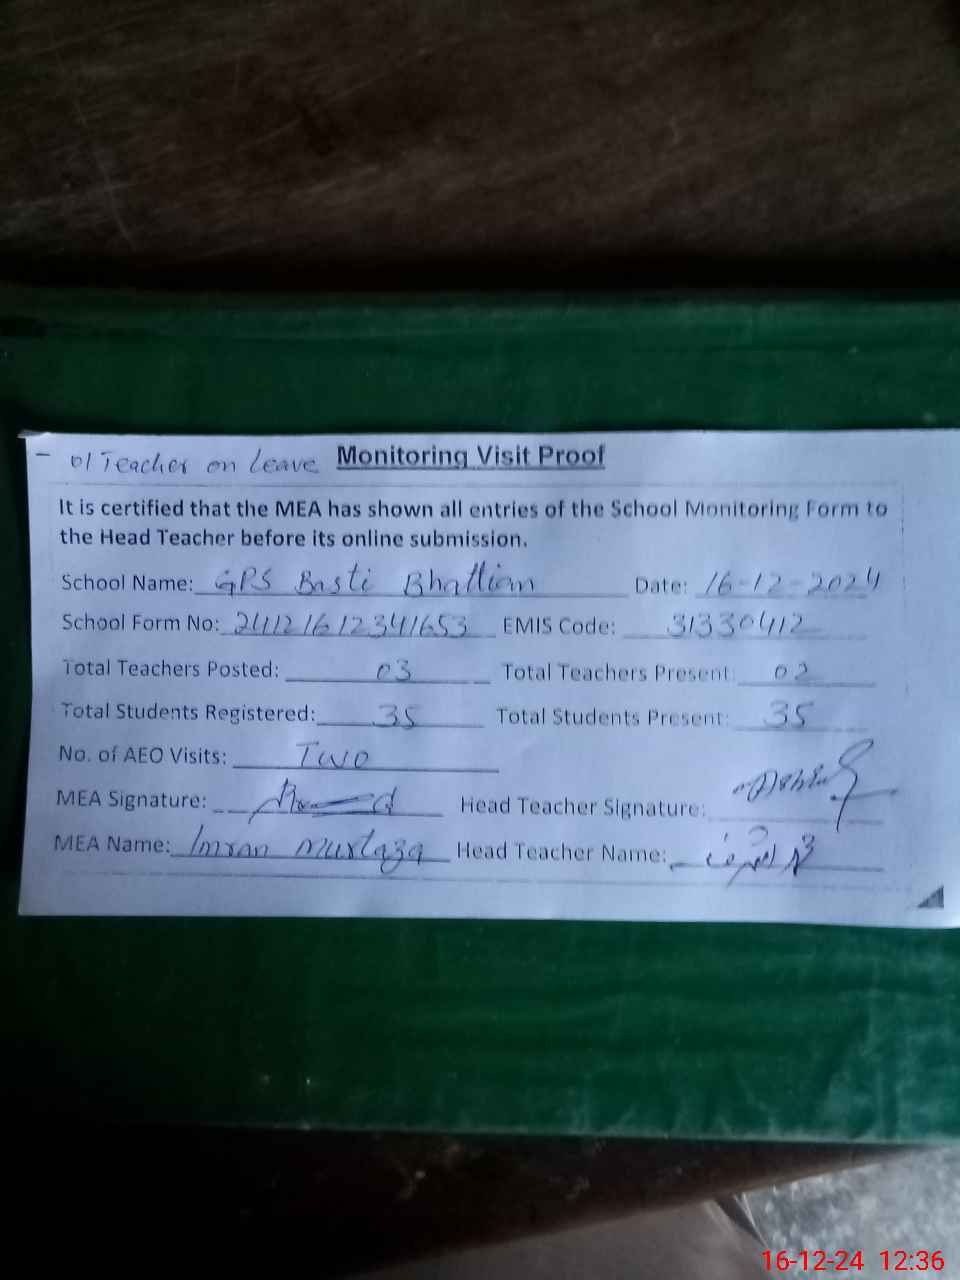 - 01 Teacher on Leave Monitoring Visit Proof
It is certified that the MEA has shown all entries of the School Monitoring Form to
the Head Teacher before its online submission.
School Name: GPS Basti Bhattian Date: 16-12-2024
School Form No: 24121612341653 EMIS Code: 31330412
Total Teachers Posted: 03 Total Teachers Present: 02
Total Students Registered: 35 Total Students Present: 35
No. of AEO Visits: Two
MEA Signature: Head Teacher Signature:
MEA Name: Imran Murtaza Head Teacher Name:
16-12-24 12:36